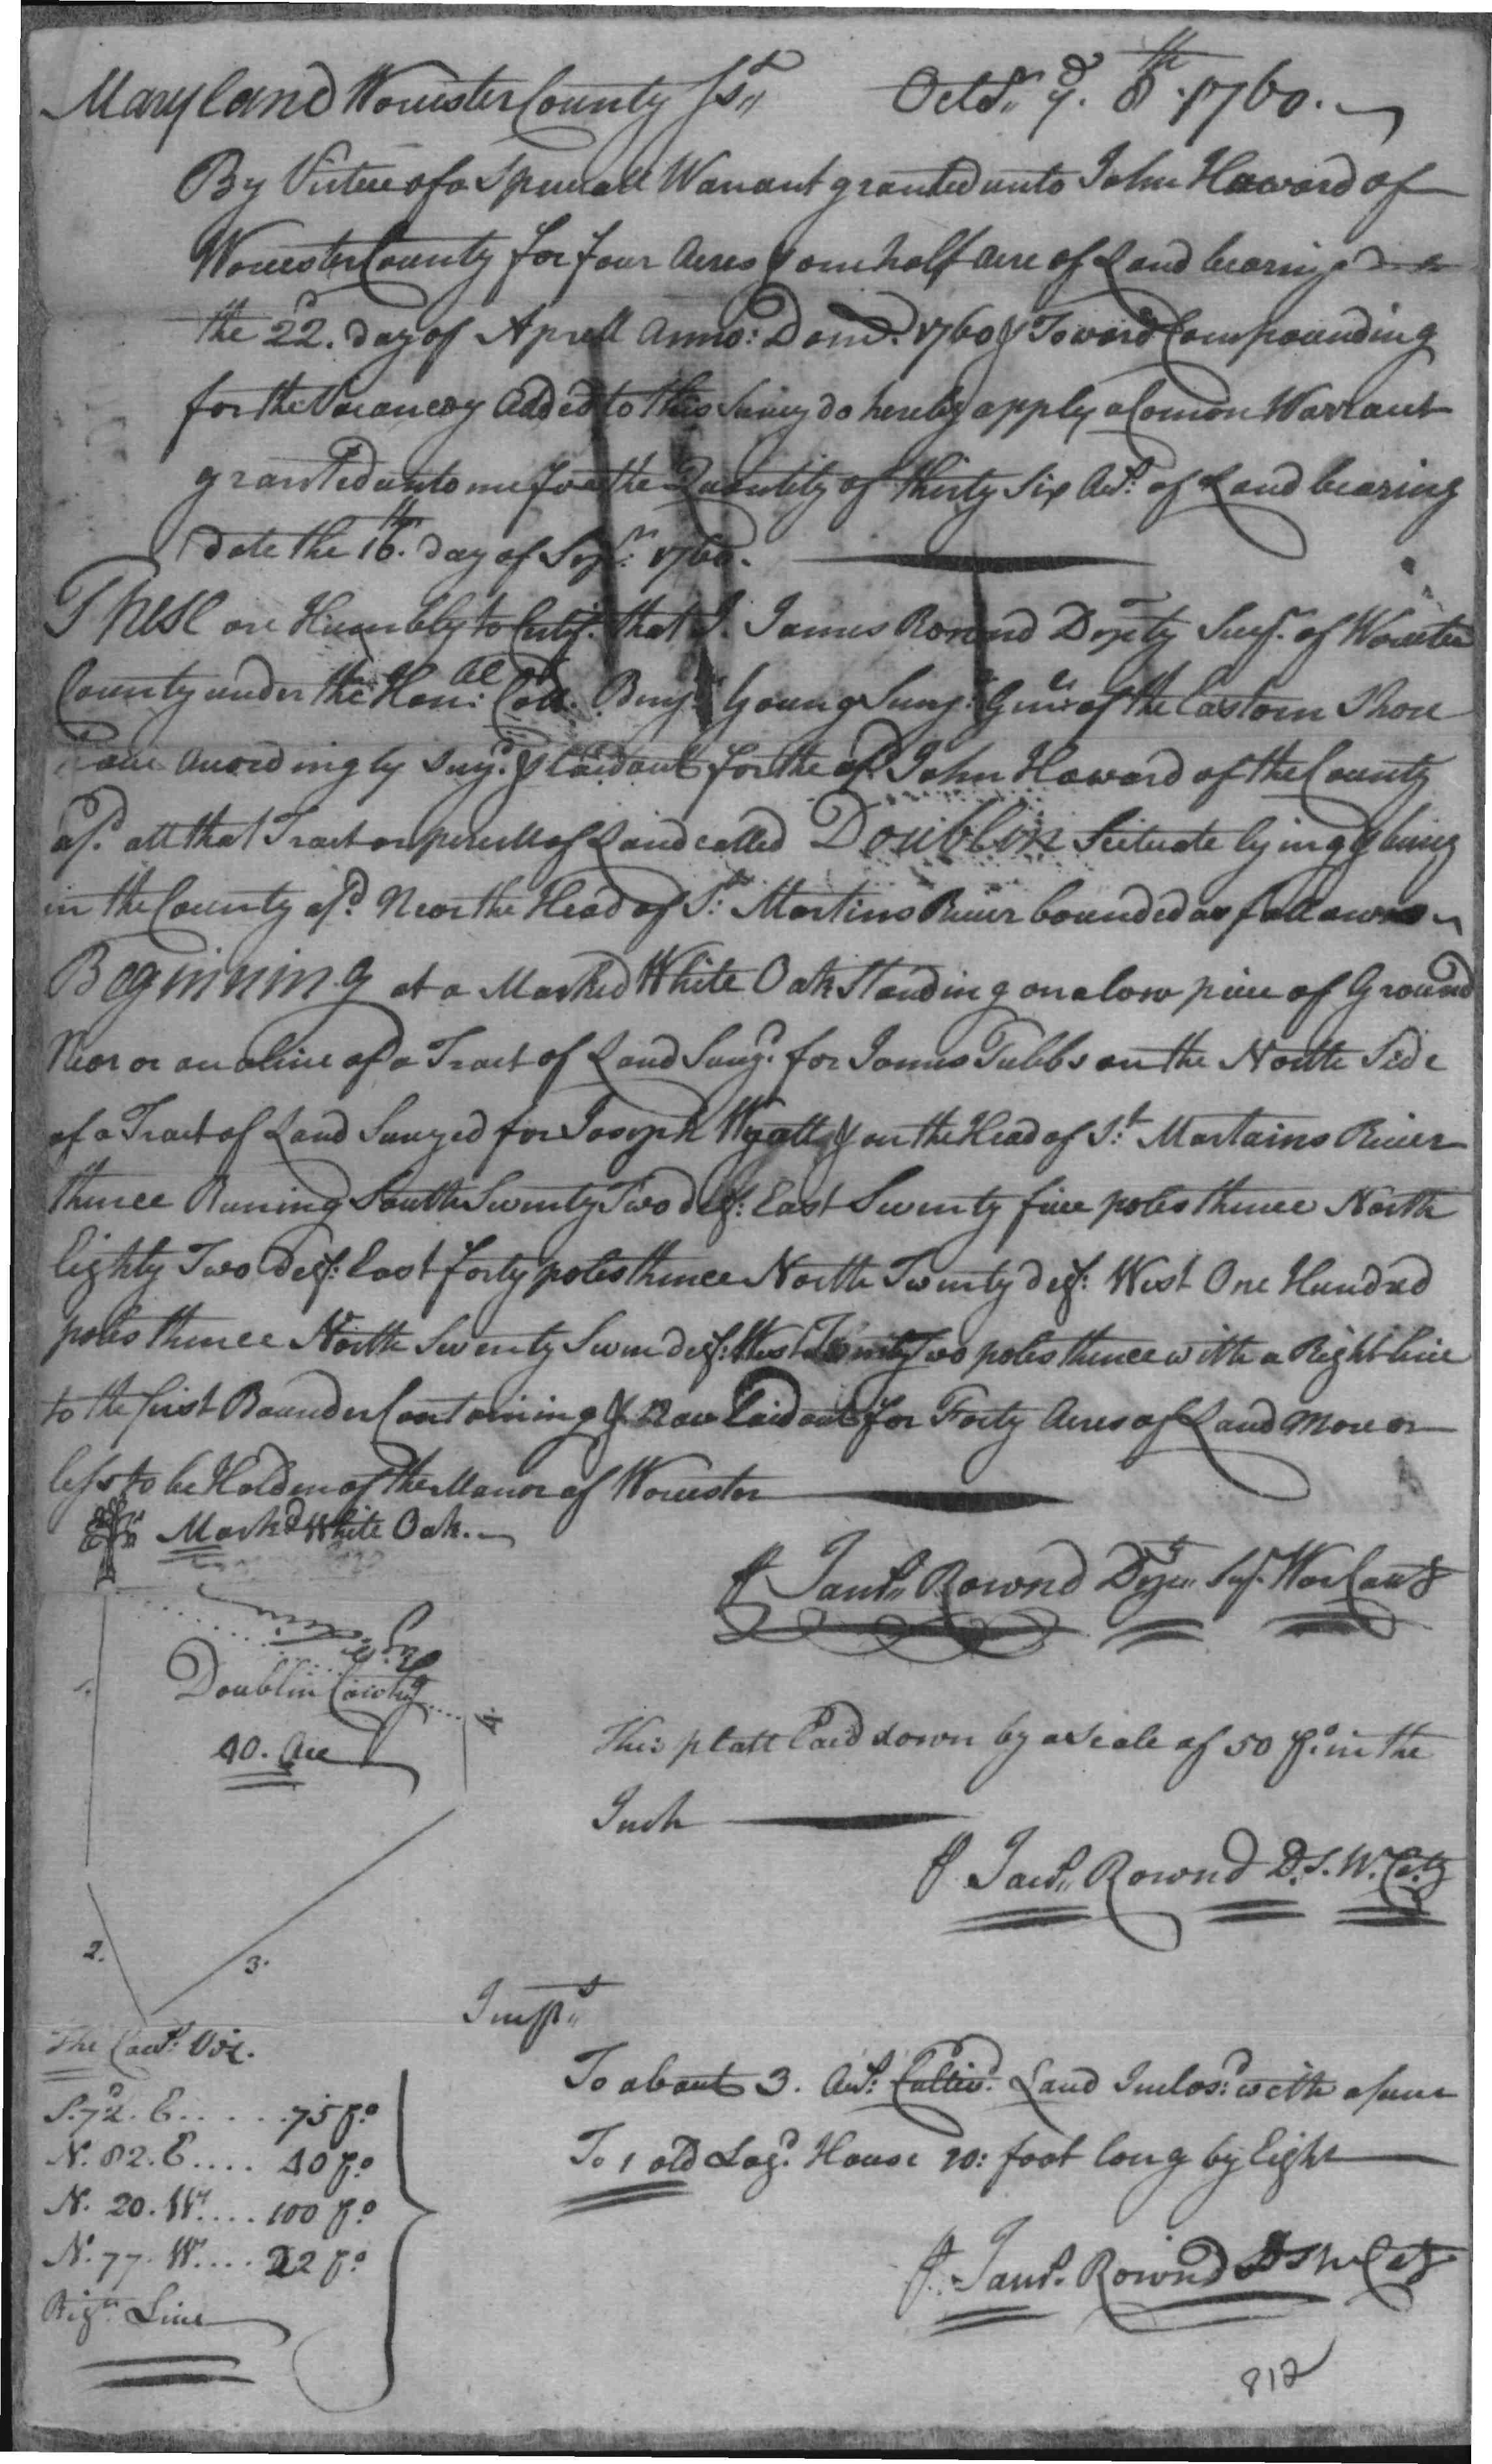 Maryland Worcester County Ss.. Octob.r y.e 8th. 1760.
By Virtue of a Speciall Warrant granted unto John Haward of
Worcester County for four Acres & one half Acre of Land bearing date
the 22.d day of Aprell Anno: Dom.. 1760 & Toward Compounding
for the Vacancy Added to this Survey do hereby apply a Comon Warrant
granted unto me for the Quantity of thirty Six Acs. of Land bearing
date the 16.th day of Sepr. 1760.
These are Humbly to Certif. that I James Rownd Depty Survr. of Worcester
County under the Hon:ble Coll. Benjn. Young Survr. Genll. of the Eastorn Shore
have Accordingly Survd. & Laid out for the afd. John Haward of the County
afd. all that Tract or percell of Land called Doublin Scituate lying & being
in the County afd. Near the Head of St. Martins River bounded as followes
Begininng at a Marked White Oak Standing on a low piece of Ground
Near or on a line of a Tract of Land Survd. for James Tubbs on the North Side
of a Tract of Land Survyed for Joseph Wyatt & on the Head of St. Martains River
thence Runing South Seventy Two deg: East Seventy five poles thence North
Eighty Two deg: East forty poles thence North Twenty deg: West One Hundred
poles thence North Seventy Seven deg: West Twenty Two poles thence with a Right line
to the first Bounder Containing & Now Laid out for Forty Acres of Land More or
less to be Holden of the Manor of Worcester
Markd White Oak.
P Jams.. Rownd Depu.. Sur. Wor County
Doublin Contg
40. Acs
1.
4
This platt Laid down by a Scale of 50 ps. in the
Inch
P Jams.. Rownd D. S. W. Cty
2.
3.
Imps..
The Cours: Viz.
To about 3. Acs: Cultivd. Land Inclosd: with a fence
S. 72. E..... 75 po
To 1 old Logd. House 20: foot long by Eight
N. 82. E.... 40 po
N. 20. W.... 100 po
N. 77. W.... 22 po
P Jams. Rownd D S W Cty
Right Line
812